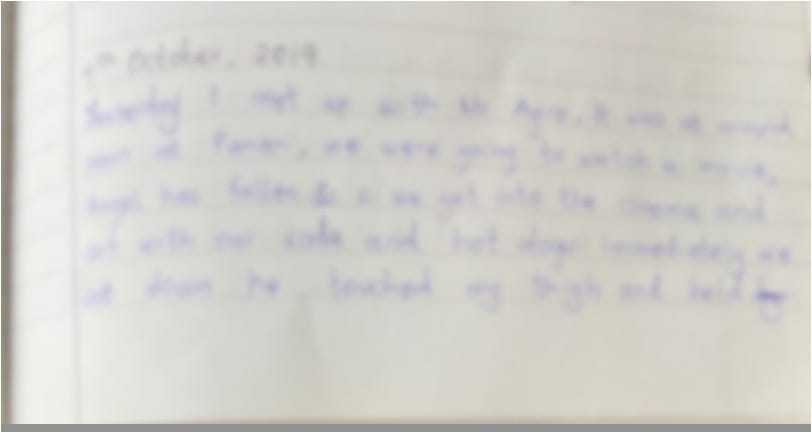 October, 2019
Yesterday I met up with Mr , it was at around
noon at , we were going to watch a movie,
Angel has fallen & si we got into the cinema and
sat with our soda and hot dogs immediately we
sat down he touched my thigh and held